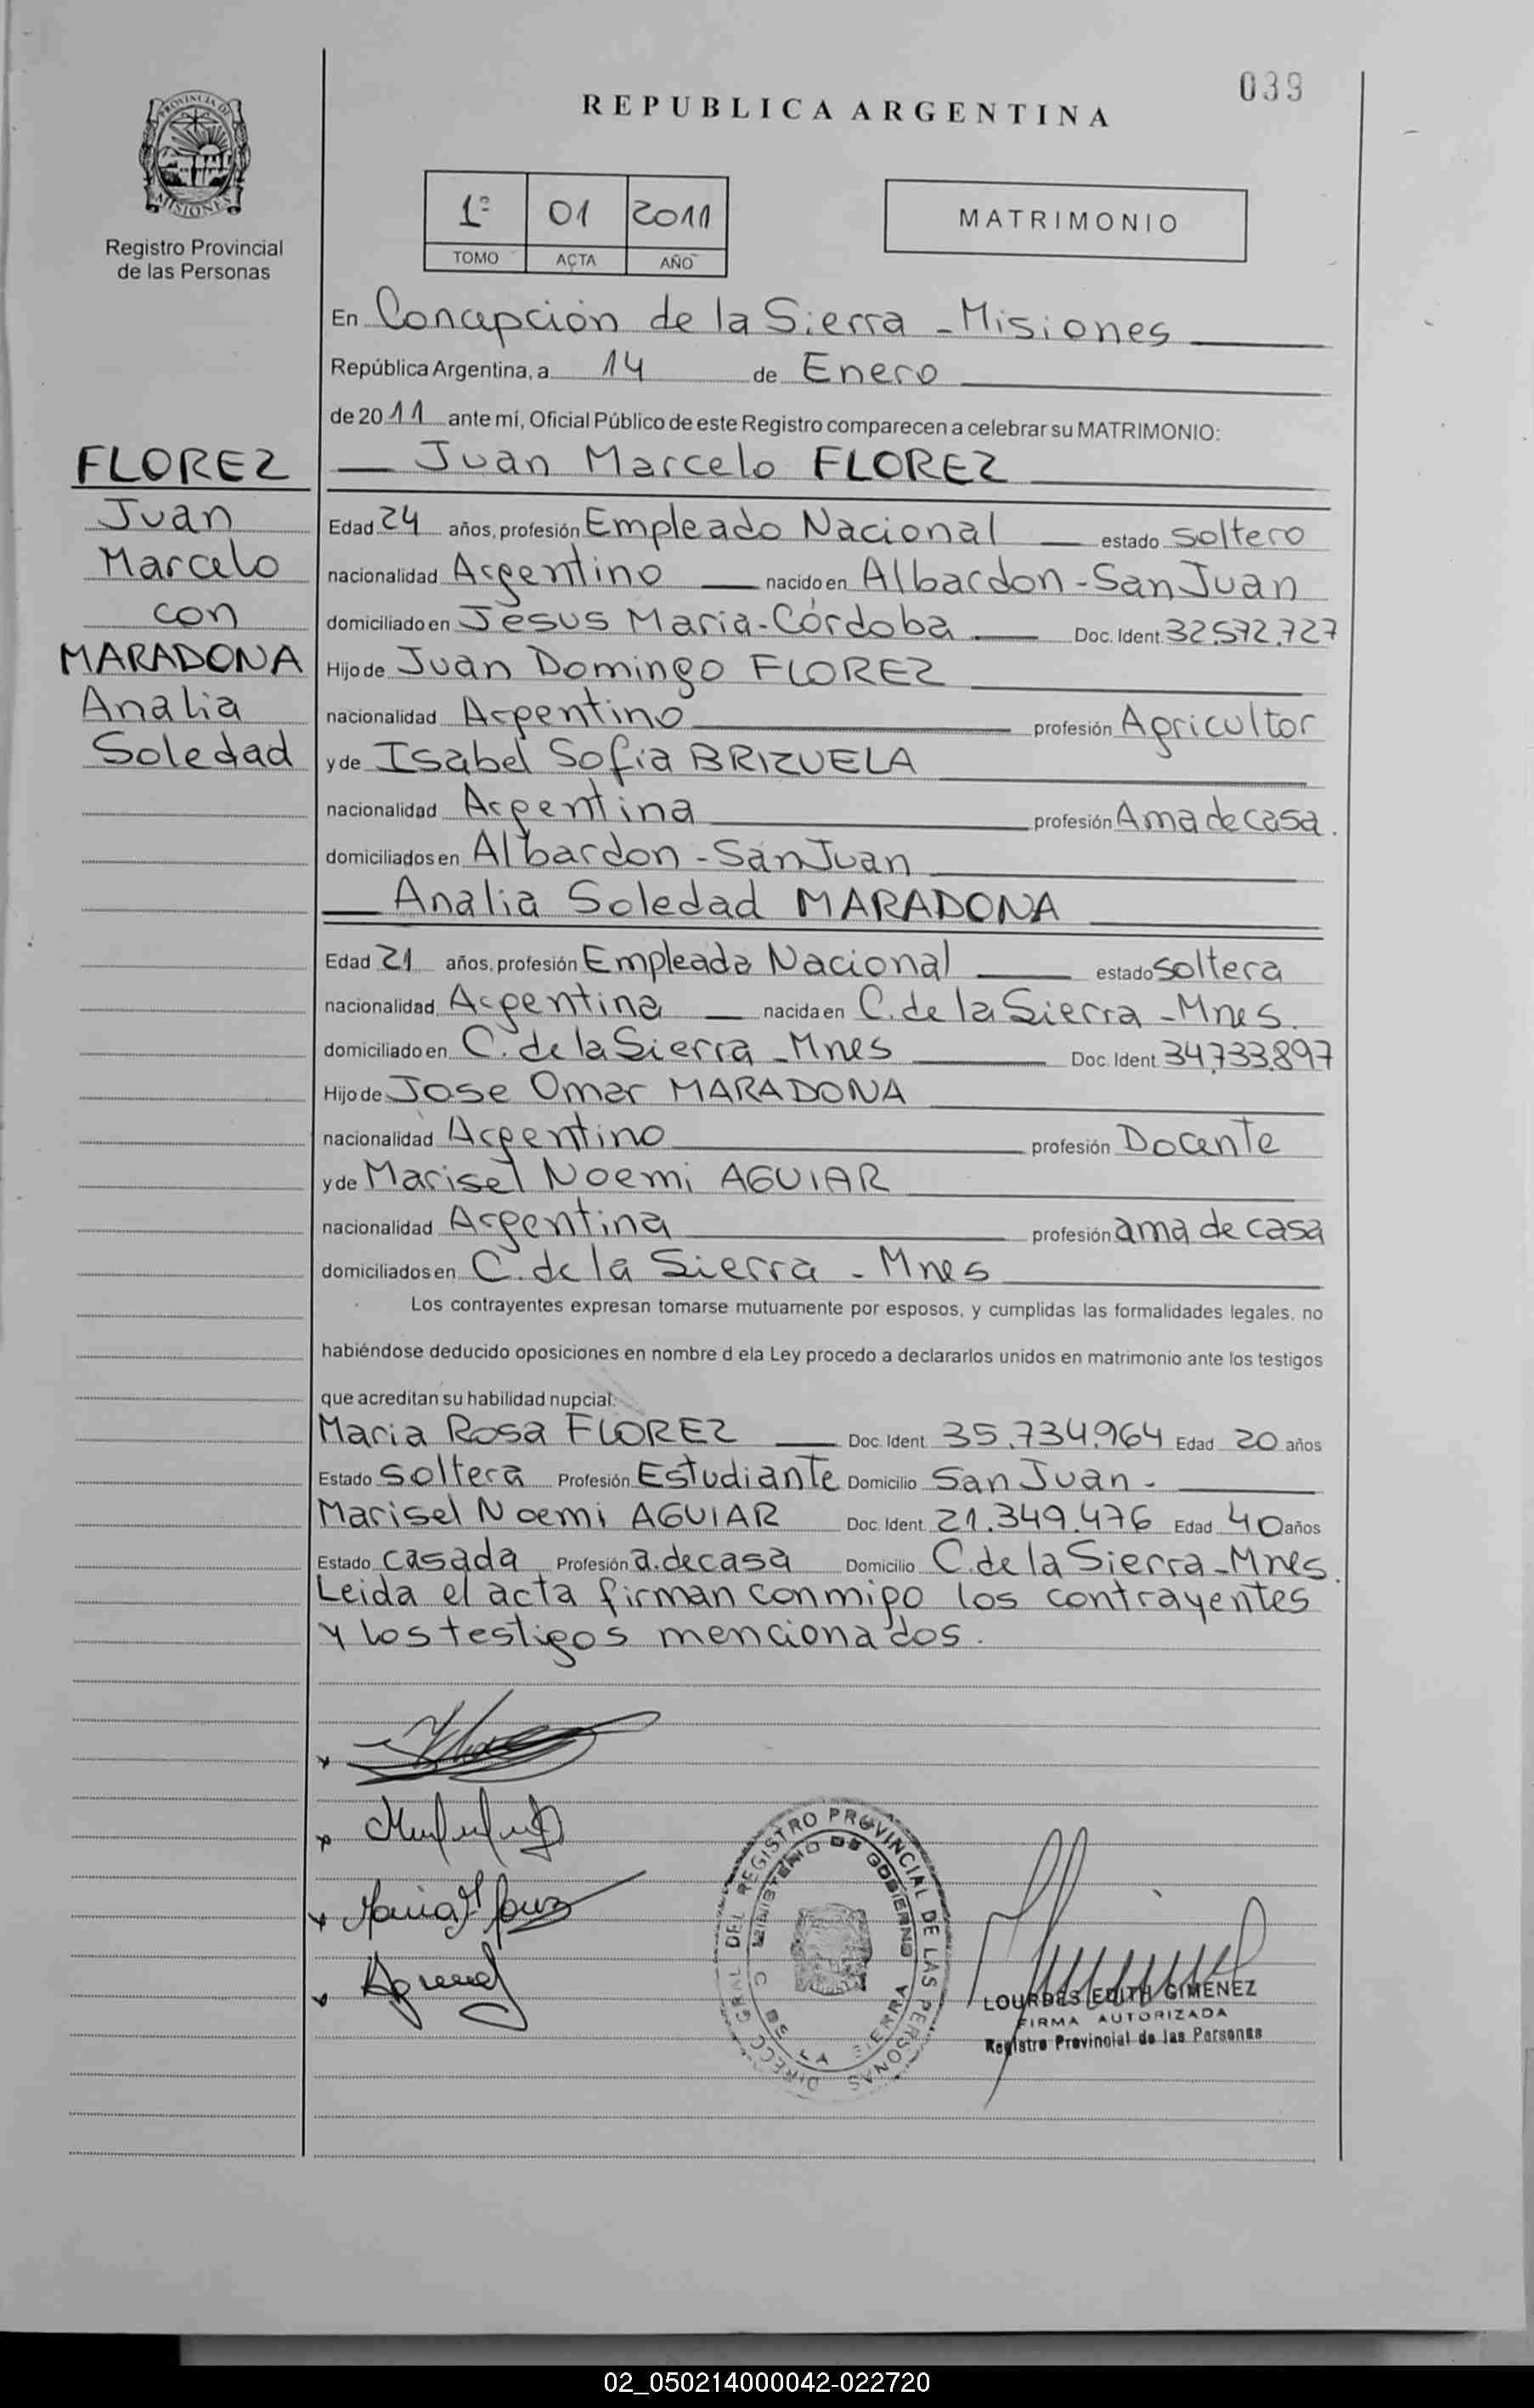 039
REPUBLICA ARGENTINA
PROVINCIA DE
MISIONES
Registro Provincial
de las Personas
1º 01 2011
TOMO ACTA AÑO
MATRIMONIO
En Concepción de la Sierra - Misiones
República Argentina, a 14 de Enero
de 2011 ante mí, Oficial Público de este Registro comparecen a celebrar su MATRIMONIO:
FLOREZ
Juan
Marcelo
con
MARADONA
Analia
Soledad
Juan Marcelo FLOREZ
Edad 24 años, profesión Empleado Nacional estado soltero
nacionalidad Argentino nacido en Albardon - San Juan
domiciliado en Jesus Maria - Córdoba Doc. Ident. 32.572.727
Hijo de Juan Domingo FLOREZ
nacionalidad Argentino profesión Agricultor
y de Isabel Sofia BRIZUELA
nacionalidad Argentina profesión Ama de casa.
domiciliados en Albardon - San Juan
Analia Soledad MARADONA
Edad 21 años, profesión Empleada Nacional estado soltera
nacionalidad Argentina nacida en C. de la Sierra - Mnes.
domiciliado en C. de la Sierra - Mnes Doc. Ident. 34.733.897
Hijo de Jose Omar MARADONA
nacionalidad Argentino profesión Docente
y de Marisel Noemi AGUIAR
nacionalidad Argentina profesión ama de casa
domiciliados en C. de la Sierra - Mnes
Los contrayentes expresan tomarse mutuamente por esposos, y cumplidas las formalidades legales, no
habiéndose deducido oposiciones en nombre d ela Ley procedo a declararlos unidos en matrimonio ante los testigos
que acreditan su habilidad nupcial.
Maria Rosa FLOREZ Doc. Ident. 35.734.964 Edad 20 años
Estado soltera Profesión Estudiante Domicilio San Juan -
Marisel Noemi AGUIAR Doc. Ident. 21.349.476 Edad 40 años
Estado casada Profesión a. de casa Domicilio C. de la Sierra - Mnes.
Leida el acta firman conmigo los contrayentes
y los testigos mencionados.
DIRECC GRAL DEL REGISTRO PROVINCIAL DE LAS PERSONAS
MINISTERIO DE GOBIERNO
C DE LA SIERRA
LOURDES EDITH GIMENEZ
FIRMA AUTORIZADA
Registro Provincial de las Personas
02_050214000042-022720